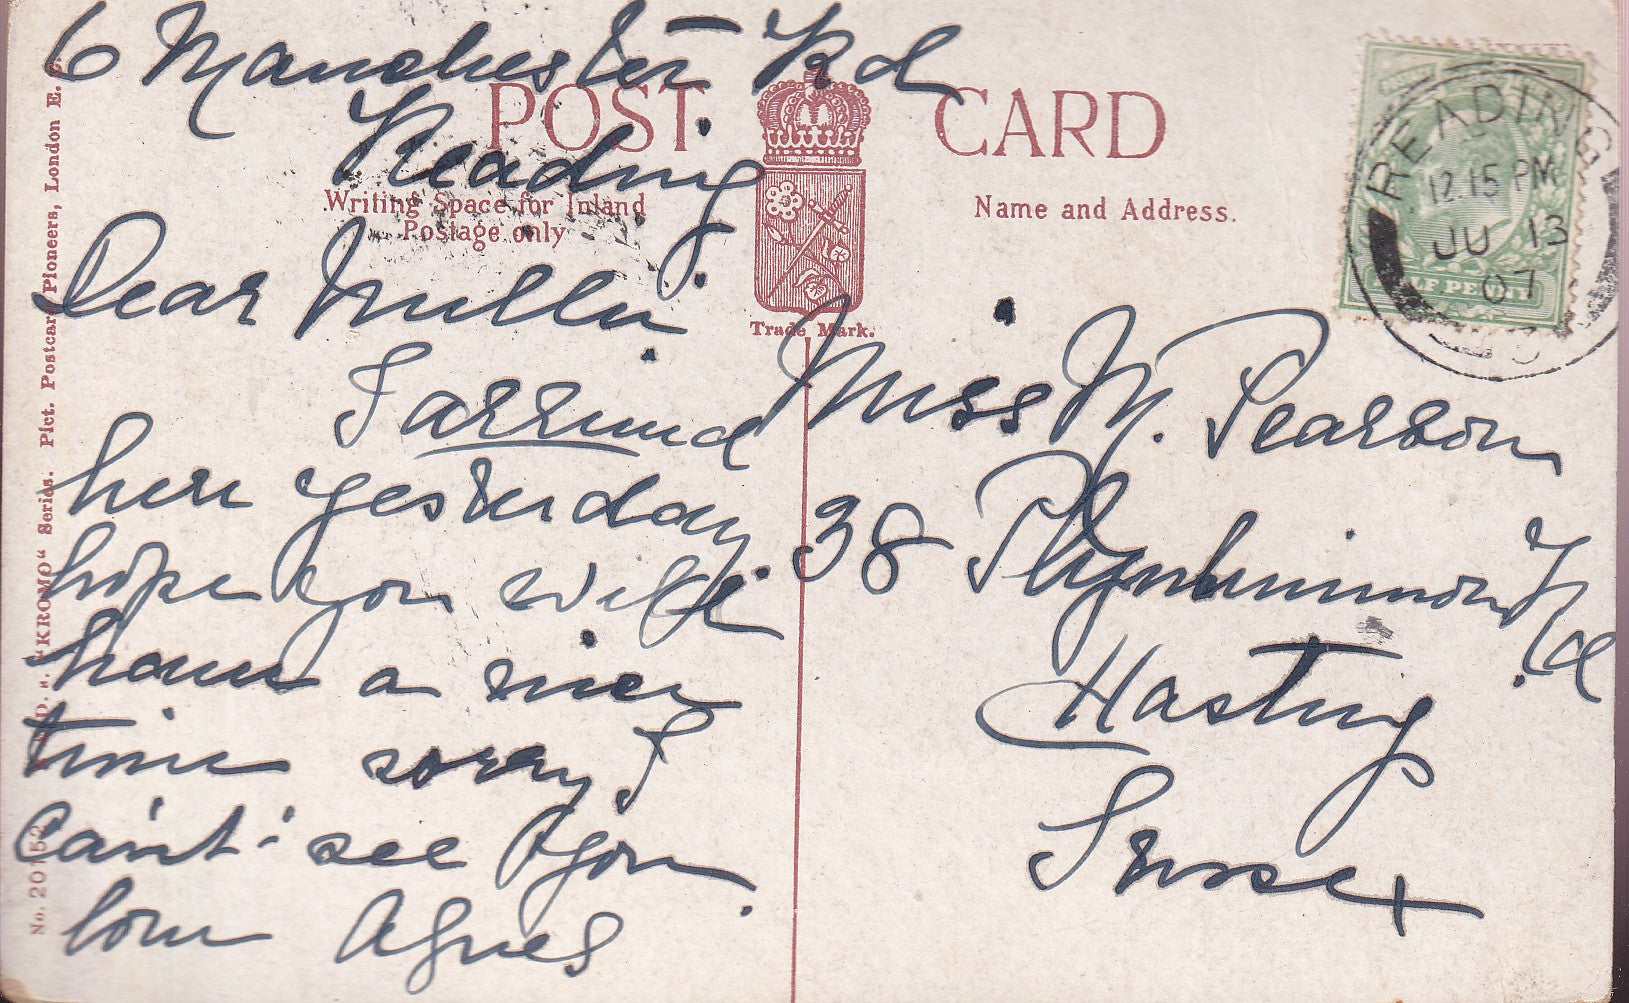 6 Manchester Rd
Reading
Dear Millie
I arrived
here yesterday
hope you will
have a nice
time sorry I
can't see you.
love Agnes
POST CARD
Writing Space for Inland
Postage only
Name and Address.
Trade Mark.
Miss M. Pearson
38 Plynlimmon Rd
Hastings
Sussex
READING
12.15 PM
JU 13
07
HALF PENNY
No. 20152 "KROMO" Series. Pict. Postcard Pioneers, London E.C.